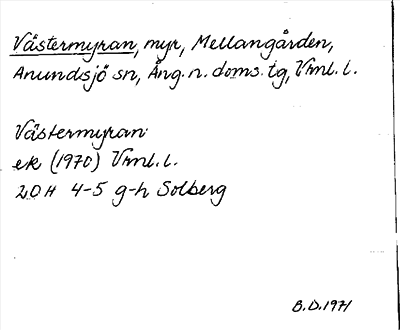 Västermyran, myr, Mellangården,
Anundsjö sn, Ång. n. doms. tg, Vrnl. l.
Västermyran
ek (1970) Vrnl. l.
20H 4-5 g-h Solberg
B.D. 1971